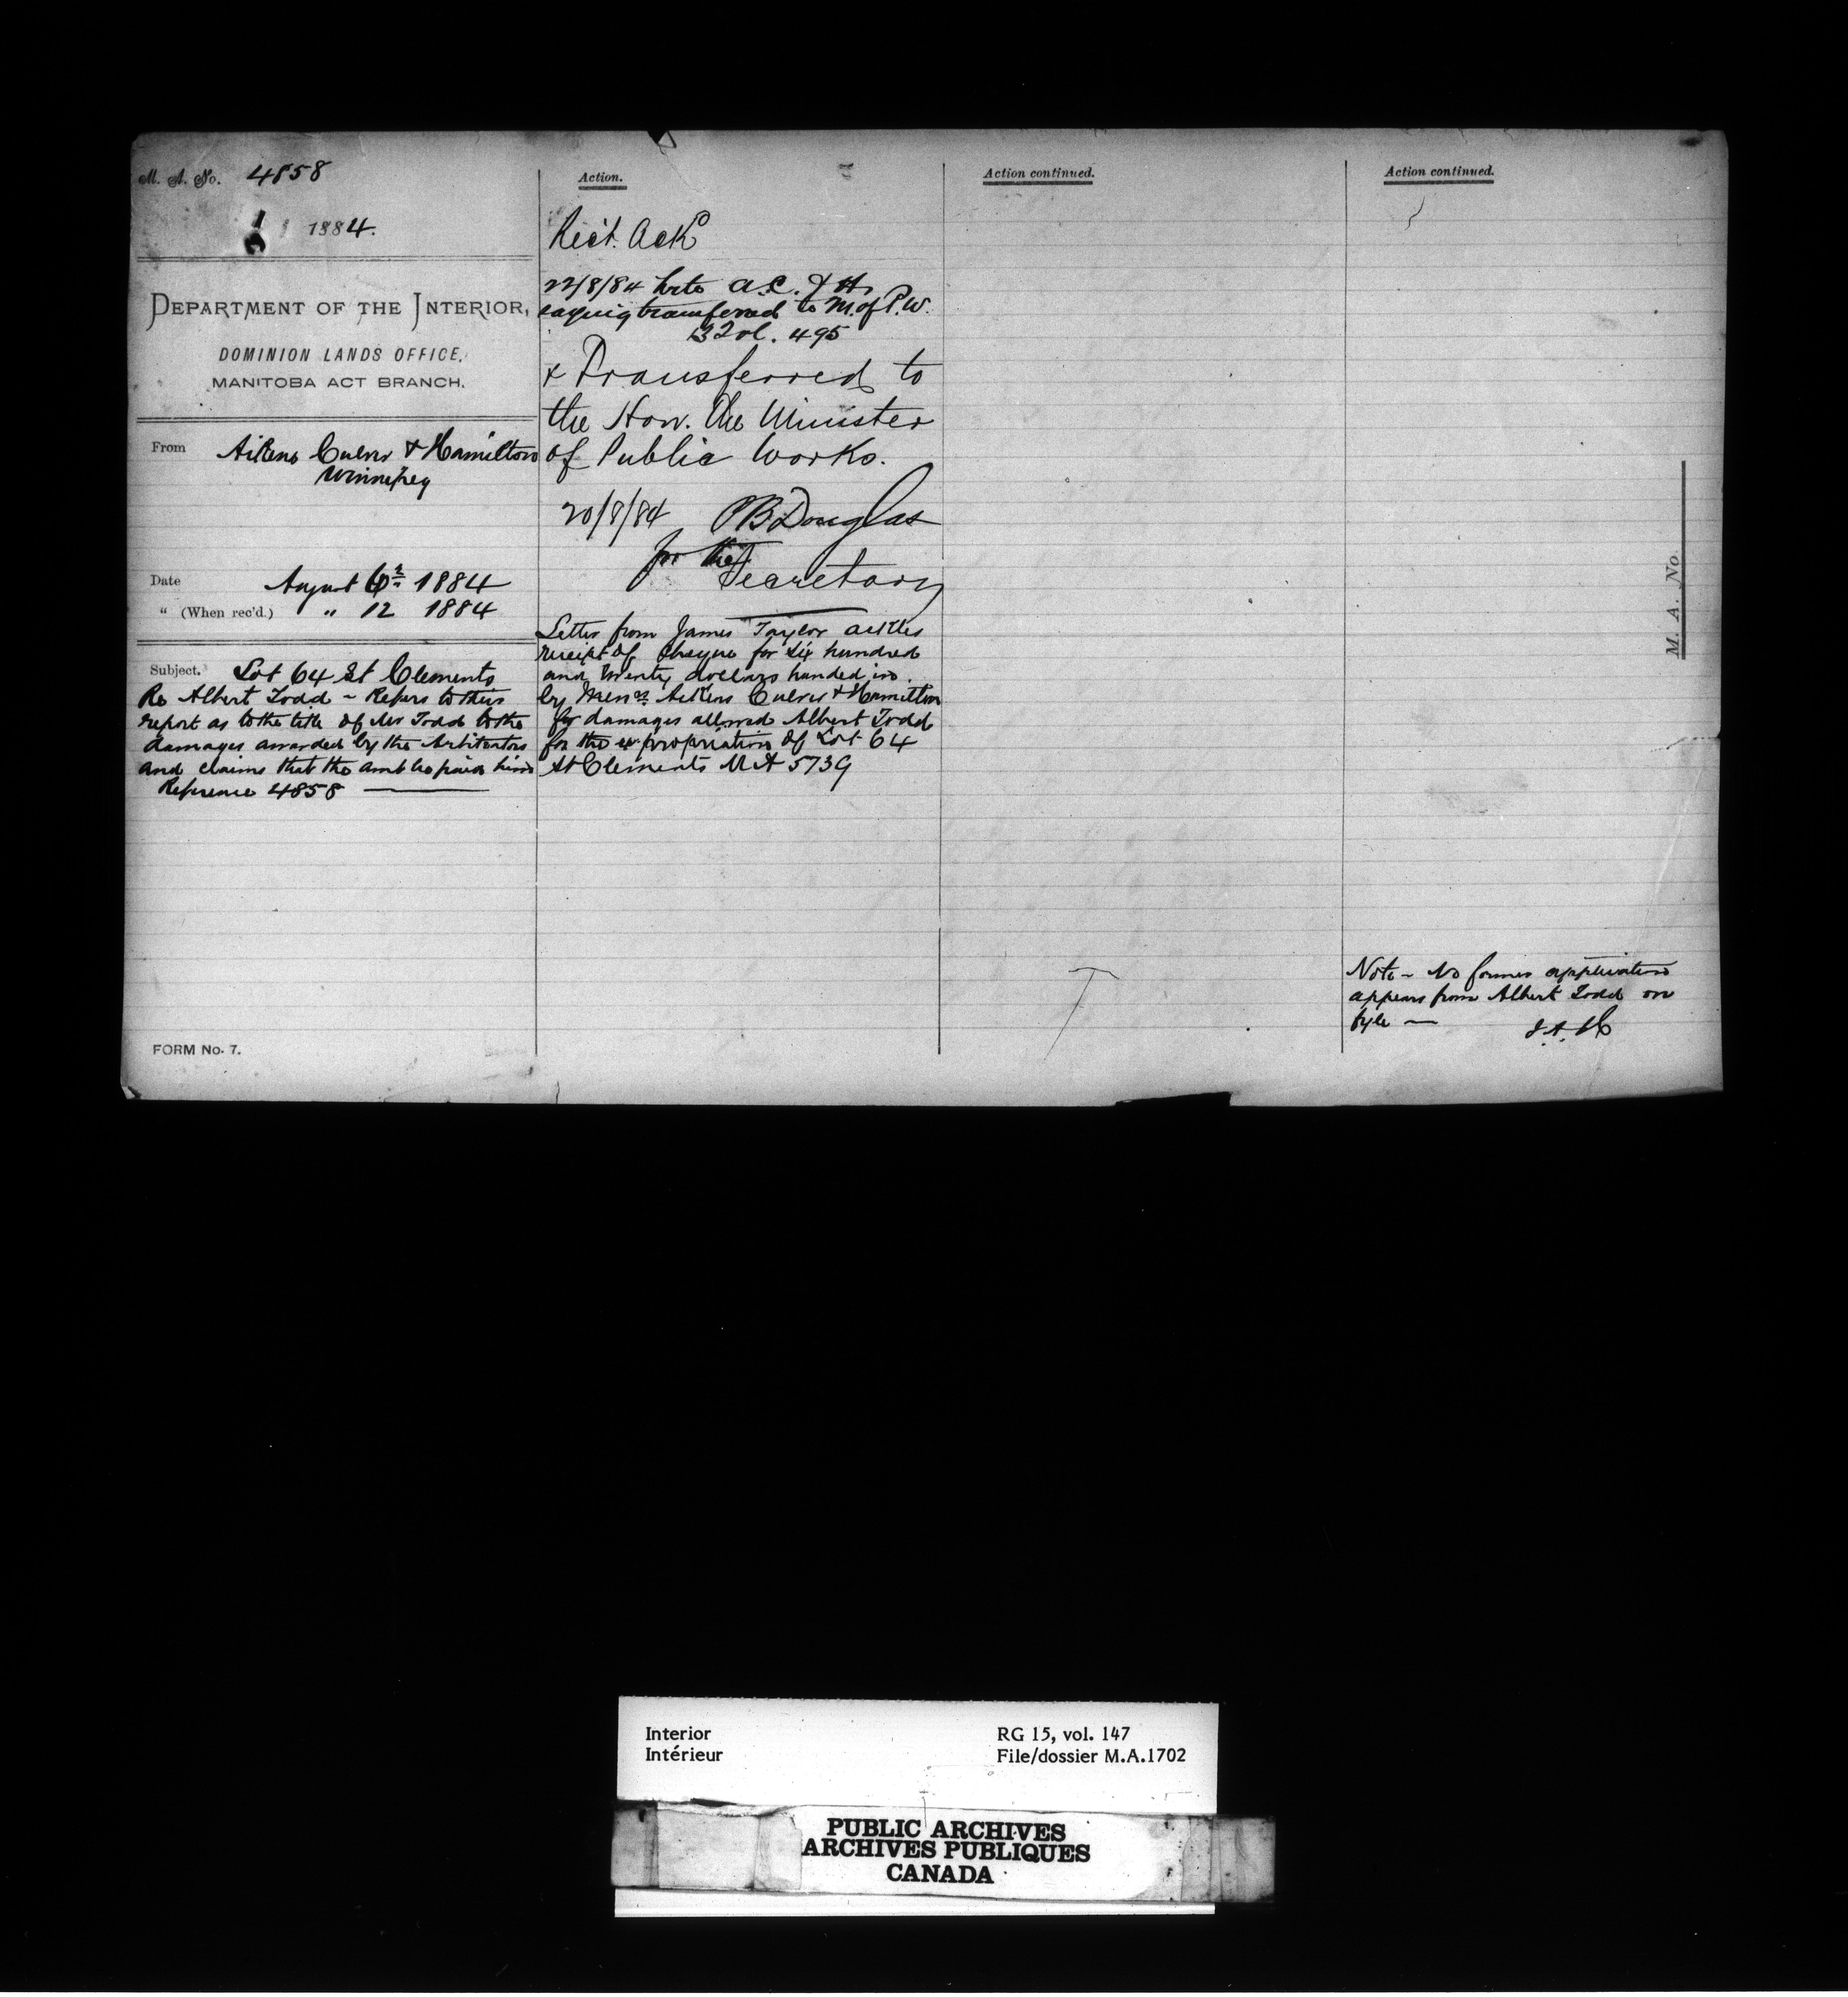 M. A. No. 4858
1884.
DEPARTMENT OF THE INTERIOR,
DOMINION LANDS OFFICE,
MANITOBA ACT BRANCH.
From Aikens Culver & Hamilton
Winnipeg
Date August 6th 1884
" (When rec'd.) " 12 1884
Subject. Lot 64 St Clements
Re Albert Todd - Refers to their
report as to the title of Mr Todd to the
damages awarded by the Arbitrators
and claims that the amt be paid him
Reference 4858
FORM No. 7.
Action.
Rect. Ack
22/8/84 Wrote A.C. & H.
saying transferred to M. of P.W.
495
& Transferred to
the Hon. the Minister
of Public Works.
20/8/84 PB Douglas
for the
Secretary
Letter from James Taylor ackles
receipt of Cheque for six hundred
and twenty dollars handed in
by Messrs Aikens Culver & Hamilton
for damages allowed Albert Todd
for the expropriation of Lot 64
St Clements MA 5739
Action continued.
Action continued.
M. A. No.
Note - No former application
appears from Albert Todd on
fyle —
Interior
Intérieur
RG 15, vol. 147
File/dossier M.A.1702
PUBLIC ARCHIVES
ARCHIVES PUBLIQUES
CANADA